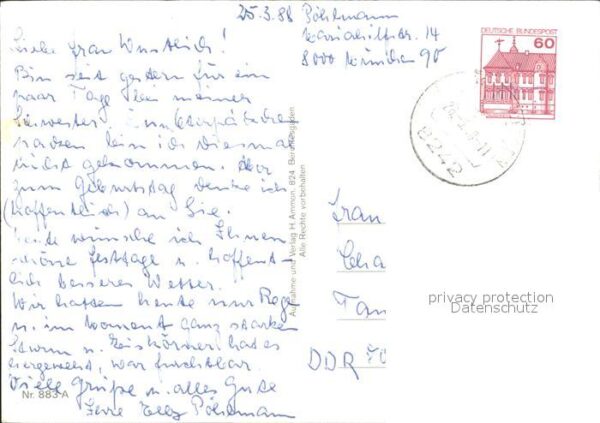 25.3.88 Pöhlmann
Mariahilfstr. 14
8000 München 90
Liebe Frau
Bin seit gestern für ein
paar Tage bei meiner
Schwester.
bin ich diesmal
nicht gekommen. Aber
zum Geburtstag denke ich
(hoffentlich) an Sie.
Heute wünsche ich Ihnen
schöne Festtage u. hoffent-
lich besseres Wetter.
Wir hatten heute nur Rege
u. im Moment ganz starken
Sturm u. Eiskörner hat es
hergeweht, war furchtbar.
Viele Grüße u. alles Gute
Ihre Elly Pöhlmann
Nr. 883 A
Aufnahme und Verlag H. Ammon, 824 Berchtesgaden
Alle Rechte vorbehalten
DEUTSCHE BUNDESPOST
60
8242
Frau
Cha
Tan
DDR
privacy protection
Datenschutz